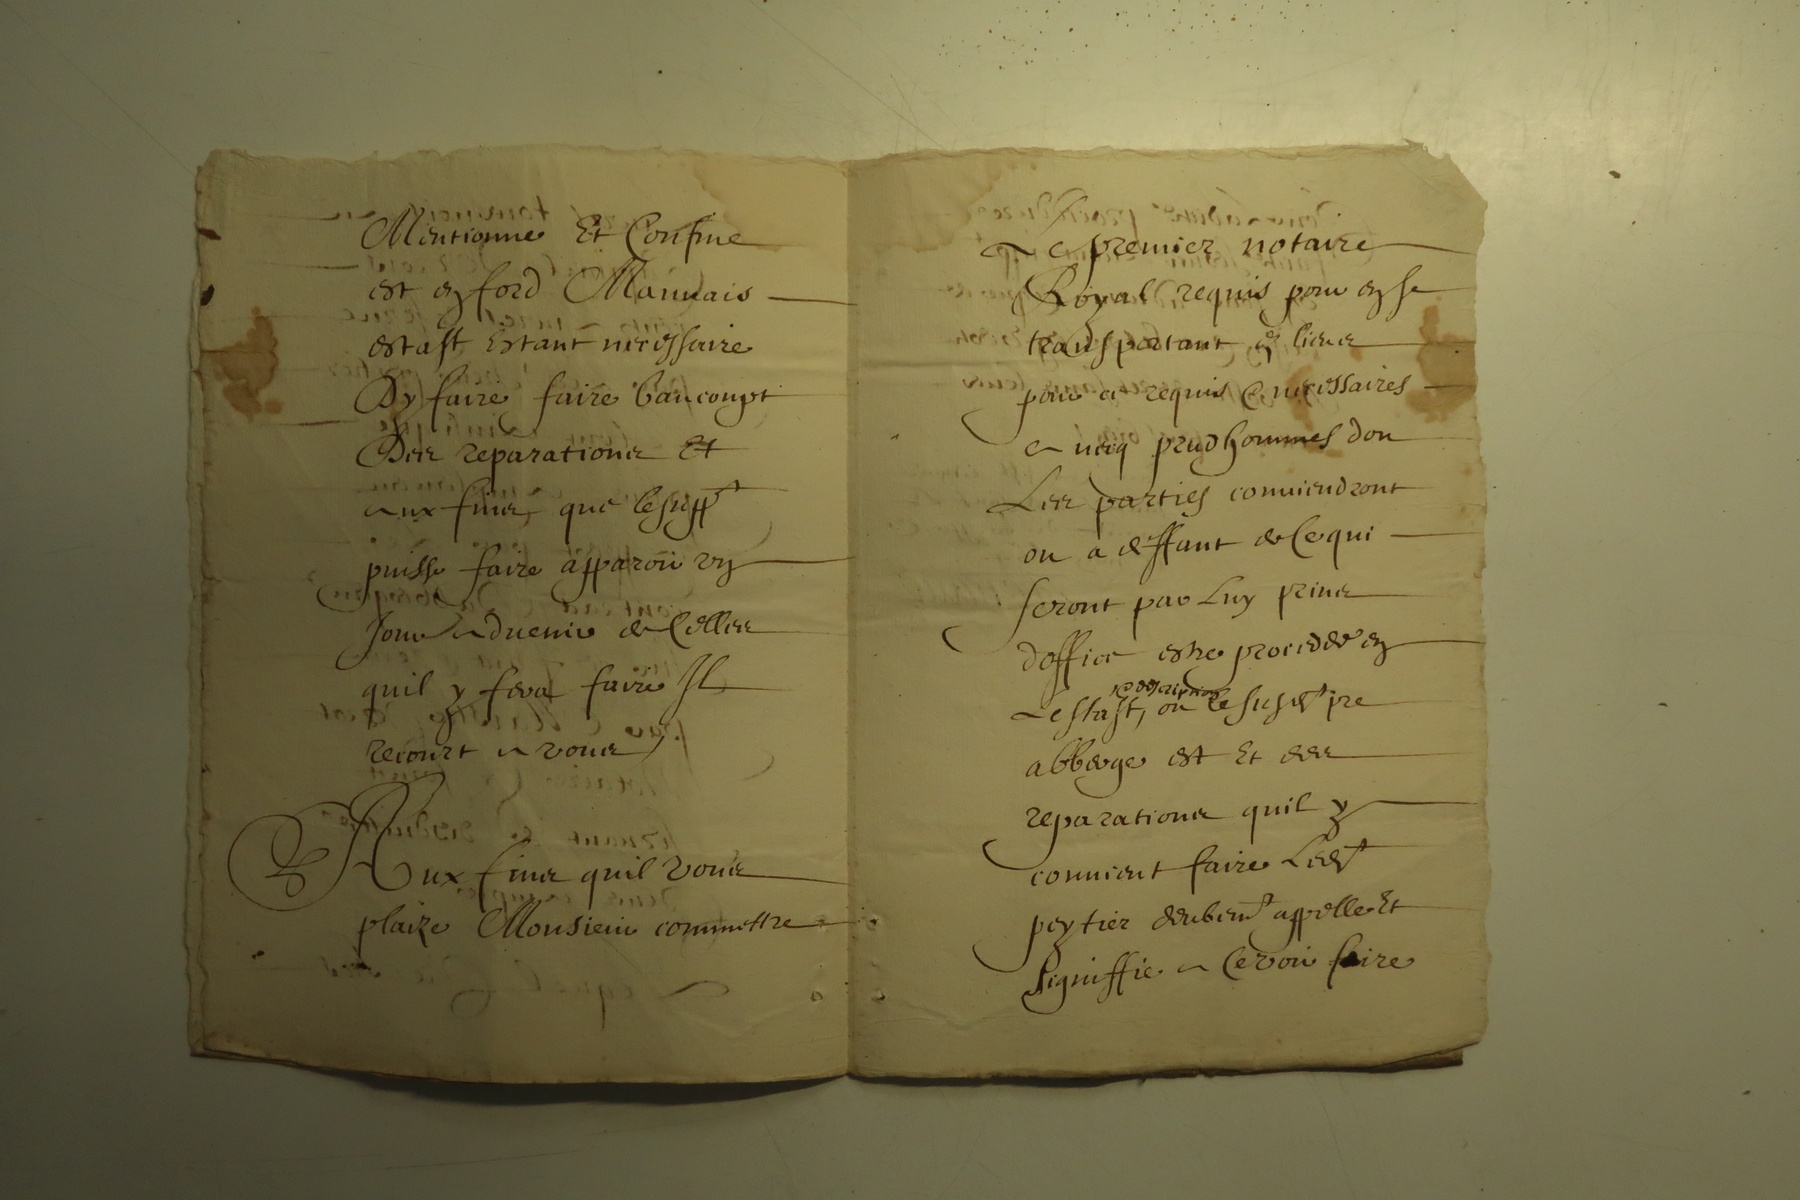 Mentionne Et Confine
est en ford Mauuais
estast Estant necessaire
Dy faire faire baucoupt
Des reparations Et
aux fines que le supp.t
puisse faire apparoir un
Jour aduenir de Celles
quil y fera faire Il
recourt a vous
Aux fines quil vous
plaize Monsieur commettre
Le premier notaire
Royal requis pour en se
transportant es lieux
pour ce requis & necessaires
auecq prudhommes don
Les parties conuiendront
ou a deffaut de Ce qui
seront par Luy prines
doffice estre procede en
Lestast, ou le susd.t pre
abberge est Et des
reparations quil y
conuient faire Led.t
peytier deubem.t appelle Et
signiffie a Ce voir faire